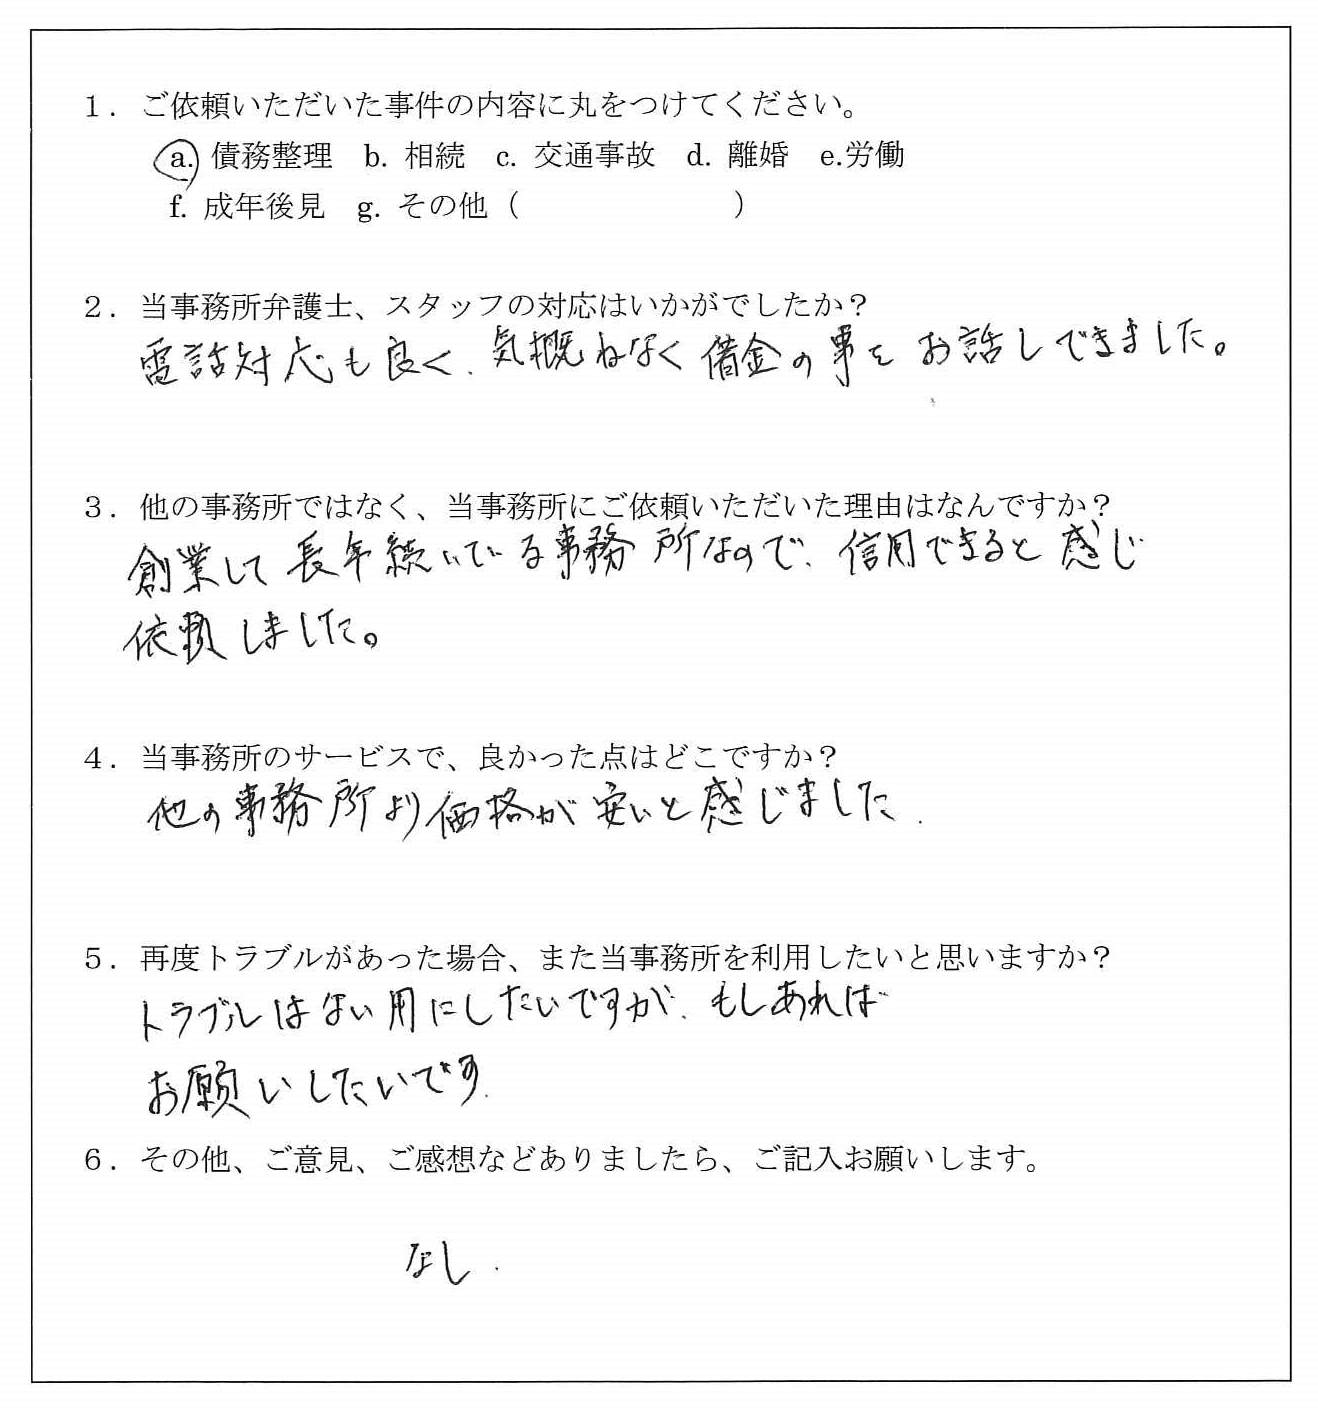 1. ご依頼いただいた事件の内容に丸をつけてください。
a. 債務整理 b. 相続 c. 交通事故 d. 離婚 e.労働
f. 成年後見 g. その他（ ）
2. 当事務所弁護士、スタッフの対応はいかがでしたか？
電話対応も良く、気概ねなく借金の事をお話しできました。
3. 他の事務所ではなく、当事務所にご依頼いただいた理由はなんですか？
創業して長年続いている事務所なので、信用できると感じ
依頼しました。
4. 当事務所のサービスで、良かった点はどこですか？
他の事務所より価格が安いと感じました.
5. 再度トラブルがあった場合、また当事務所を利用したいと思いますか？
トラブルはない用にしたいですが、もしあれば
お願いしたいです.
6. その他、ご意見、ご感想などありましたら、ご記入お願いします。
なし.